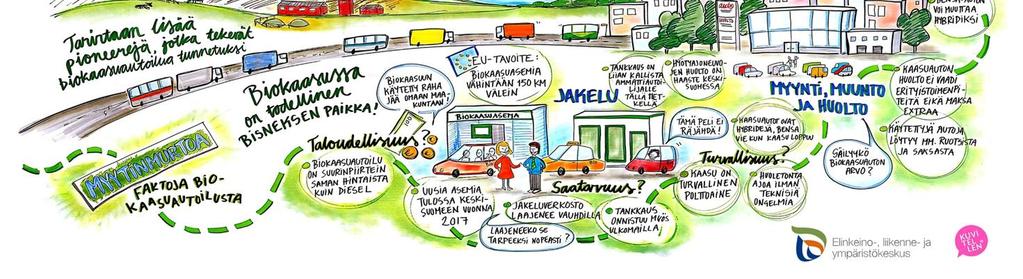 Tarvitaan lisää
pioneerejä, jotka tekevät
biokaasuautoilua tunnetuksi
Biokaasussa
on todellinen
BISNEKSEN PAIKKA!
MYYTINMURTOA
FAKTOJA BIO-
KAASUAUTOILUSTA
Taloudellisuus?
BIOKAASUUN
KÄYTETTY RAHA
JÄÄ OMAAN MAA-
KUNTAAN!
BIOKAASUAUTOILU
ON SUURINPIIRTEIN
SAMAN HINTAISTA
KUIN DIESEL
EU-TAVOITE:
BIOKAASUASEMIA
VÄHINTÄÄN 150 KM
VÄLEIN
BIOKAASUASEMA
JAKELU
TANKKAUS ON
LIIAN KALLISTA
AMMATTIAUTOI-
LIJALLE
TÄLLÄ HET-
KELLÄ
HYÖTYAJONEUVO-
JEN HUOLTO ON
HAASTE KESKI-
SUOMESSA
UUSIA ASEMIA
TULOSSA KESKI-
SUOMEEN VUONNA
2017
Saatavuus?
JAKELUVERKOSTO
LAAJENEE VAUHDILLA
LAAJENEEKO SE
TARPEEKSI NOPEASTI?
TANKKAUS
ONNISTUU MYÖS
ULKOMAILLA
TÄMÄ PELI EI
RÄJÄHDÄ!
KAASUAUTOT OVAT
HYBRIDEJÄ, BENSA
VIE KUN KAASU LOPPUU
Turvallisuus?
KAASU ON
TURVALLINEN
POLTTOAINE
HUOLETONTA
AJOA ILMAN
TEKNISIÄ
ONGELMIA
VOI MUUTTAA
HYBRIDIKSI
MYYNTI, MUUNTO
JA HUOLTO
SÄILYYKÖ
BIOKAASUAUTON
ARVO?
KAASUAUTON
HUOLTO EI VAADI
ERITYISTOIMENPI-
TEITÄ EIKÄ MAKSA
EXTRAA
KÄYTETTYJÄ AUTOJA
LÖYTYY MM. RUOTSISTA
JA SAKSASTA
Elinkeino-, liikenne- ja
ympäristökeskus
KUVI
TEL
LEN